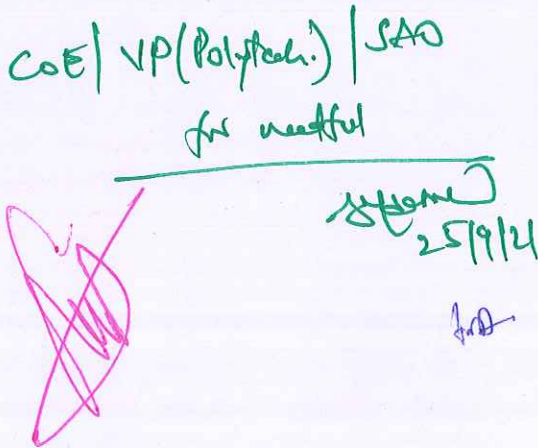 CoE| VP(Polytech.) |SAO
for needful
25/9/21